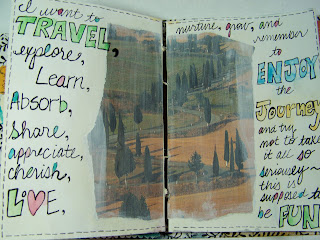 I want to
TRAVEL,
explore,
Learn,
Absorb,
share,
appreciate,
cherish,
LOVE,
nurture, grow, and
remember
to
ENJOY
the
Journey
and try
not to take
it all so
seriously~
this is
supposed to
be FUN